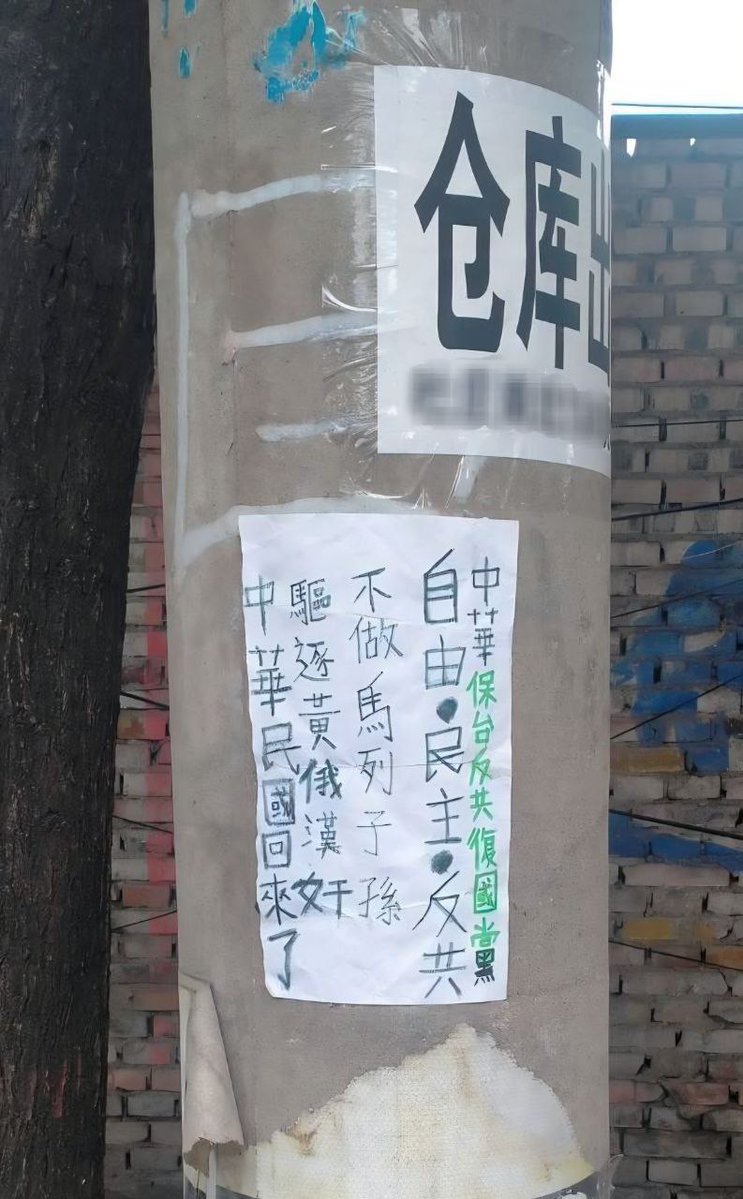 仓库出
中華保台反共復國黨
自由·民主·反共
不做馬列子孫
驅逐黃俄漢奸
中華民國回來了